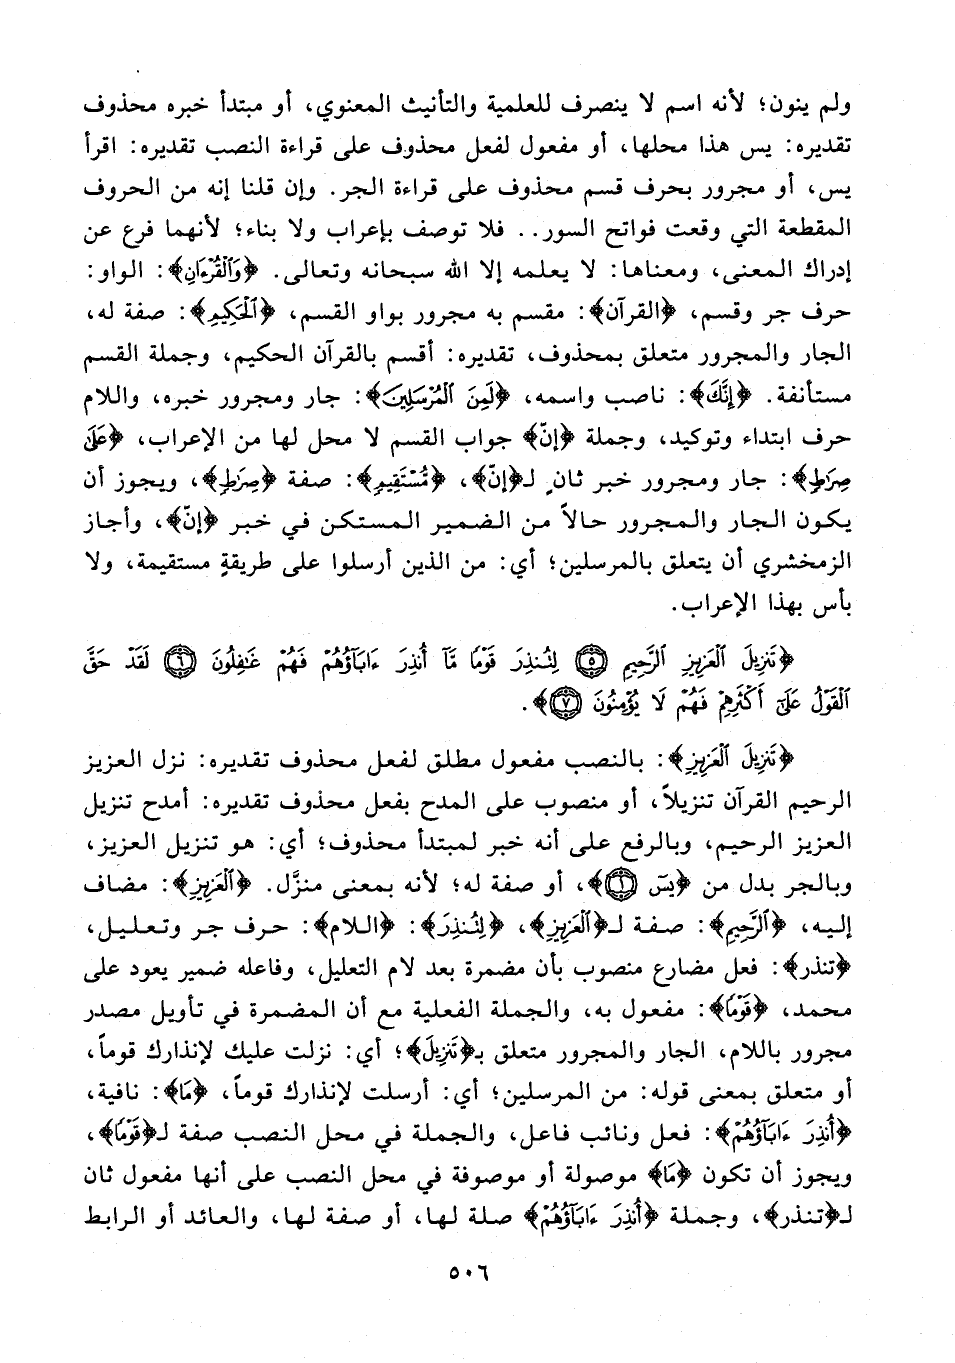 ولم ينون؛ لأنه اسم لا ينصرف للعلمية والتأنيث المعنوي، أو مبتدأ خبره محذوف
تقديره: يس هذا محلها، أو مفعول لفعل محذوف على قراءة النصب تقديره: اقرأ
يس، أو مجرور بحرف قسم محذوف على قراءة الجر. وإن قلنا إنه من الحروف
المقطعة التي وقعت فواتح السور.. فلا توصف بإعراب ولا بناء؛ لأنهما فرع عن
إدراك المعنى، ومعناها: لا يعلمه إلا الله سبحانه وتعالى. ﴿وَٱلْقُرْءَانِ﴾: الواو:
حرف جر وقسم، ﴿القرآن﴾: مقسم به مجرور بواو القسم، ﴿ٱلْحَكِيمِ﴾: صفة له،
الجار والمجرور متعلق بمحذوف، تقديره: أقسم بالقرآن الحكيم، وجملة القسم
مستأنفة. ﴿إِنَّكَ﴾: ناصب واسمه، ﴿لَمِنَ ٱلْمُرْسَلِينَ﴾: جار ومجرور خبره، واللام
حرف ابتداء وتوكيد، وجملة ﴿إنّ﴾ جواب القسم لا محل لها من الإعراب، ﴿عَلَىٰ
صِرَٰطٍ﴾: جار ومجرور خبر ثانٍ لـ﴿إنّ﴾، ﴿مُّسْتَقِيمٍ﴾: صفة ﴿صِرَٰطٍ﴾، ويجوز أن
يكون الجار والمجرور حالاً من الضمير المستكن في خبر ﴿إنّ﴾، وأجاز
الزمخشري أن يتعلق بالمرسلين؛ أي: من الذين أرسلوا على طريقةٍ مستقيمة، ولا
بأس بهذا الإعراب.
﴿تَنزِيلَ ٱلْعَزِيزِ ٱلرَّحِيمِ ۝٥ لِتُنذِرَ قَوْمًا مَّآ أُنذِرَ ءَابَآؤُهُمْ فَهُمْ غَٰفِلُونَ ۝٦ لَقَدْ حَقَّ
ٱلْقَوْلُ عَلَىٰٓ أَكْثَرِهِمْ فَهُمْ لَا يُؤْمِنُونَ ۝٧﴾.
﴿تَنزِيلَ ٱلْعَزِيزِ﴾: بالنصب مفعول مطلق لفعل محذوف تقديره: نزل العزيز
الرحيم القرآن تنزيلاً، أو منصوب على المدح بفعل محذوف تقديره: أمدح تنزيل
العزيز الرحيم، وبالرفع على أنه خبر لمبتدأ محذوف؛ أي: هو تنزيل العزيز،
وبالجر بدل من ﴿يسٓ ۝١﴾، أو صفة له؛ لأنه بمعنى منزَّل. ﴿ٱلْعَزِيزِ﴾: مضاف
إليه، ﴿ٱلرَّحِيمِ﴾: صفة لـ﴿ٱلْعَزِيزِ﴾، ﴿لِتُنذِرَ﴾: ﴿اللام﴾: حرف جر وتعليل،
﴿تنذر﴾: فعل مضارع منصوب بأن مضمرة بعد لام التعليل، وفاعله ضمير يعود على
محمد، ﴿قَوْمًا﴾: مفعول به، والجملة الفعلية مع أن المضمرة في تأويل مصدر
مجرور باللام، الجار والمجرور متعلق بـ﴿تَنزِيلَ﴾؛ أي: نزلت عليك لإنذارك قوماً،
أو متعلق بمعنى قوله: من المرسلين؛ أي: أرسلت لإنذارك قوماً، ﴿مَّا﴾: نافية،
﴿أُنذِرَ ءَابَآؤُهُمْ﴾: فعل ونائب فاعل، والجملة في محل النصب صفة لـ﴿قَوْمًا﴾،
ويجوز أن تكون ﴿مَّا﴾ موصولة أو موصوفة في محل النصب على أنها مفعول ثان
لـ﴿تنذر﴾، وجملة ﴿أُنذِرَ ءَابَآؤُهُمْ﴾ صلة لها، أو صفة لها، والعائد أو الرابط
٥٠٦